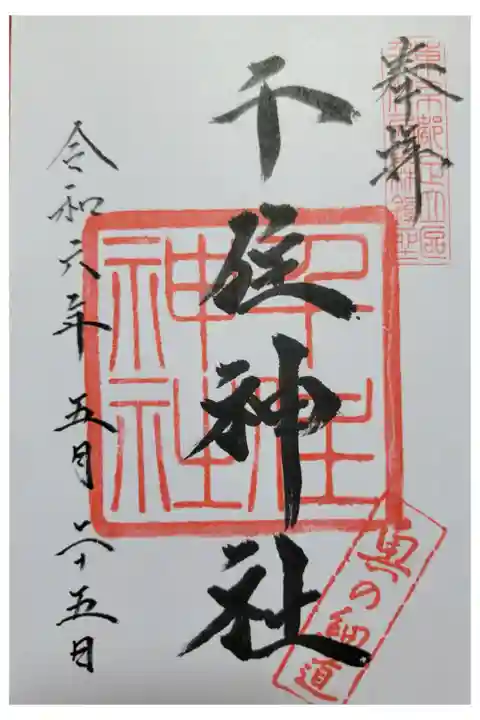 奉拝
東京都足立区
千住神社
千住
神社
奥の細道
令和六年五月二十五日